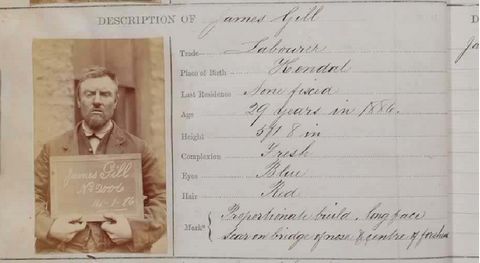 DESCRIPTION OF James Gill
Trade Labourer
Place of Birth Kendal
Last Residence None fixed
Age 29 years in 1886.
Height 5ft 8 in
Complexion Fresh
Eyes Blue
Hair Red
Marks Proportionate build, long face
Scar on bridge of nose & centre of forehead
James Gill
No 2006
D
Ja